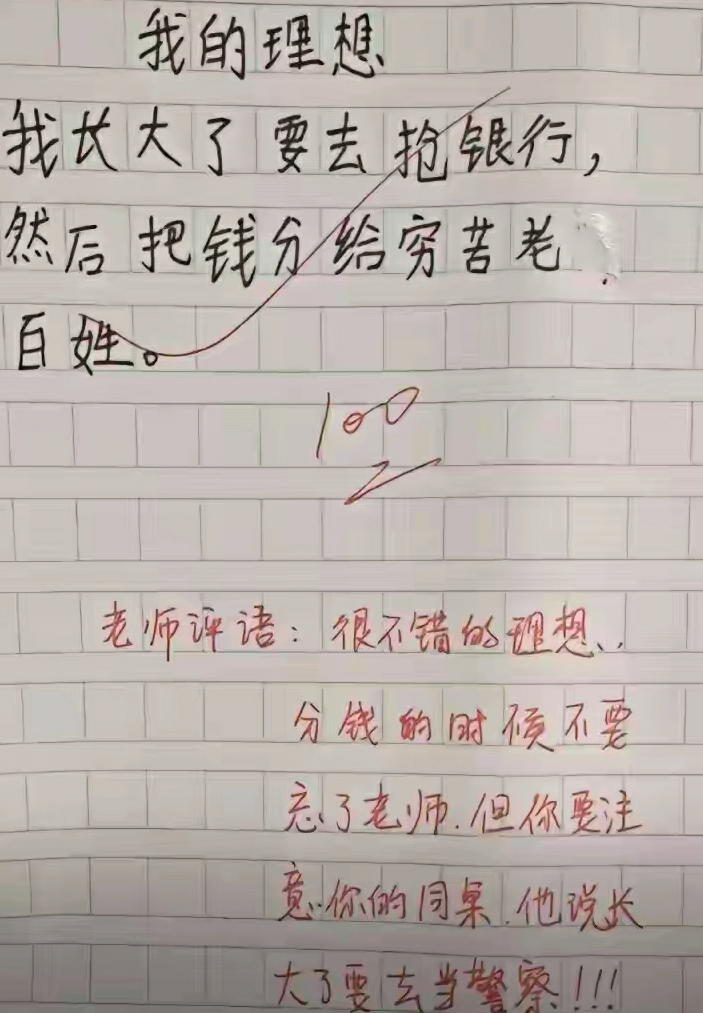 我的理想
我长大了要去抢银行，
然后把钱分给穷苦老
百姓。
100
老师评语：很不错的理想、
分钱的时候不要
忘了老师.但你要注
意.你的同桌.他说长
大了要去当警察!!!